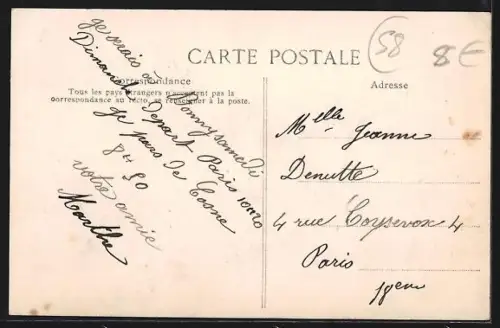 CARTE POSTALE
58
8€
Correspondance
Tous les pays étrangers n'acceptent pas la
correspondance au recto, se renseigner à la poste.
Adresse
je serais à Bonny samedi
Dimanche Départ Paris 10h20
je pars de Cosne
8h 50
votre amie
Marthe
Melle Jeanne
Denutte
4 rue Coysevox 4
Paris
18eme